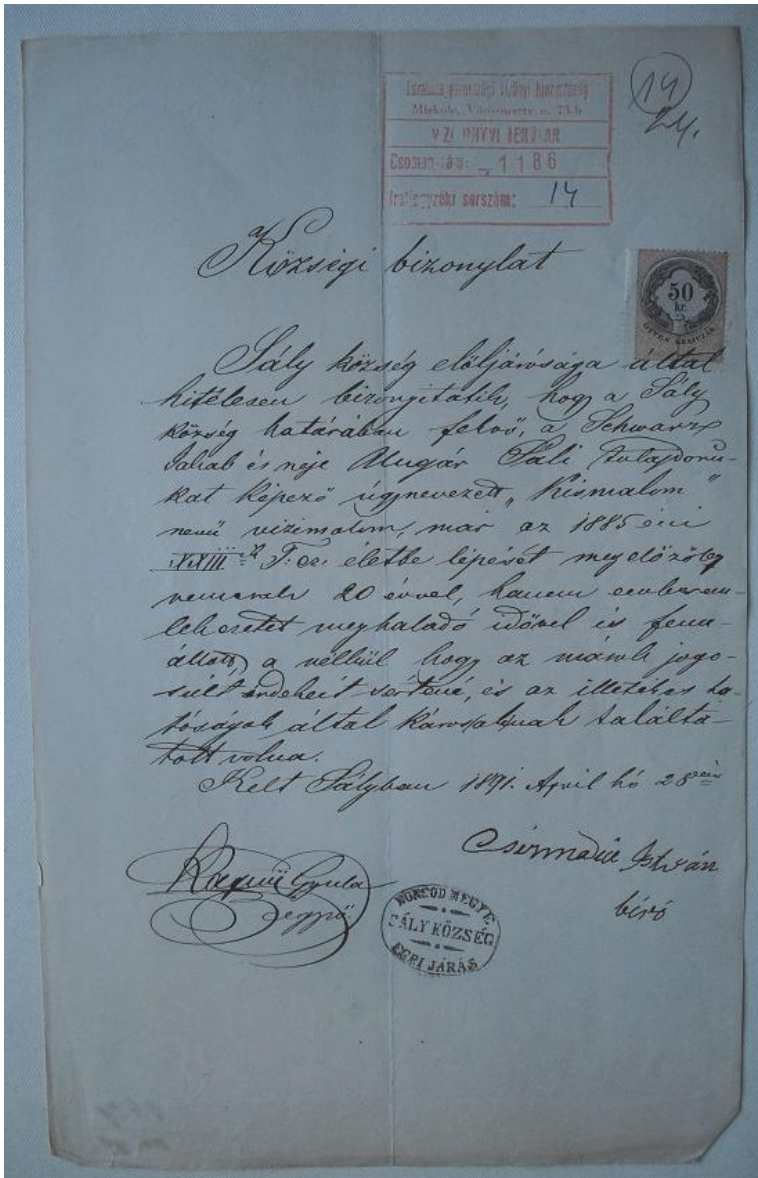 Északmagyarországi Vízügyi Igazgatóság
Miskolc, Vörösmarty u. 73/b
VIZIKÖNYVI IRATTÁR
Csomószám: 1186
Iratjegyzéki sorszám: 14
14
24.
Községi bizonylat
50
kr.
ÖTVEN KRAJCZÁR
Sály község elöljárósága által
hitelesen bizonyitatik, hogy a Sály
község határában felvő, a Schwarz
Jakab és neje Ungár Sáli tulajdonu-
kat képező úgynevezett „Kismalom"
nevü vizimalom, már az 1885 évi
XXIII ik T: cz. életbe lépését megelőzőleg
nemcsak 20 évvel, hanem emberem-
lékezetet meghaladó idővel is fenn-
állott a nélkül hogy az mások jogo-
sult érdekeit sértené, és az illetékes ha-
tóságok által károsaknak találta-
tott volna.
Kelt Sályban 1891. April hó 28 án
Csirmadia István
biró
Gyula
jegyző.
BORSOD MEGYE
SÁLY KÖZSÉG
EGRI JÁRÁS